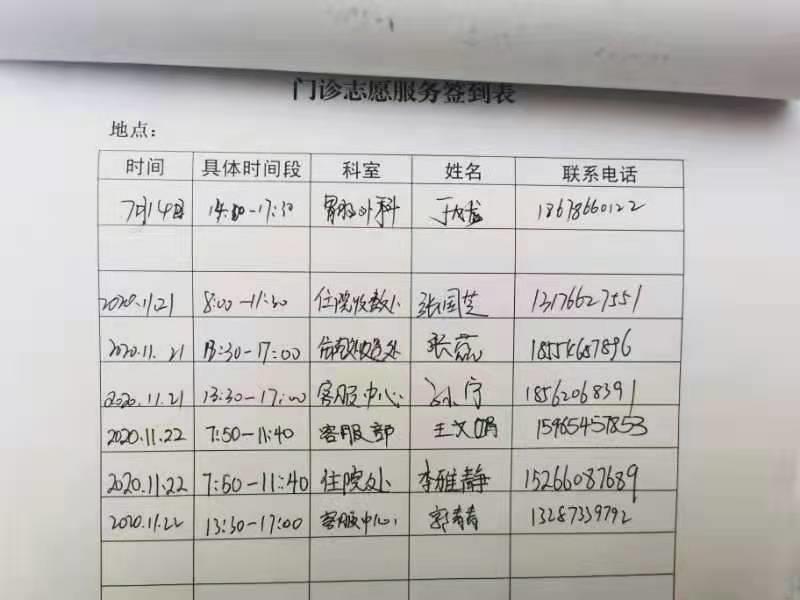 门诊志愿服务签到表
地点：
时间 具体时间段 科室 姓名 联系电话
7月14日 14:30-17:30 胃肠外科 18678660122
2020.11.21 8:00-11:30 住院收费处 张国芝 13176627551
2020.11.21 13:30-17:00 处 张蕊 18554687896
2020.11.21 13:30-17:00 客服中心 孙宁 18562068391
2020.11.22 7:50-11:40 客服部 王文娟 15965457853
2020.11.22 7:50-11:40 住院处 李雅静 15266087689
2020.11.22 13:30-17:00 客服中心 郭青青 13287339792